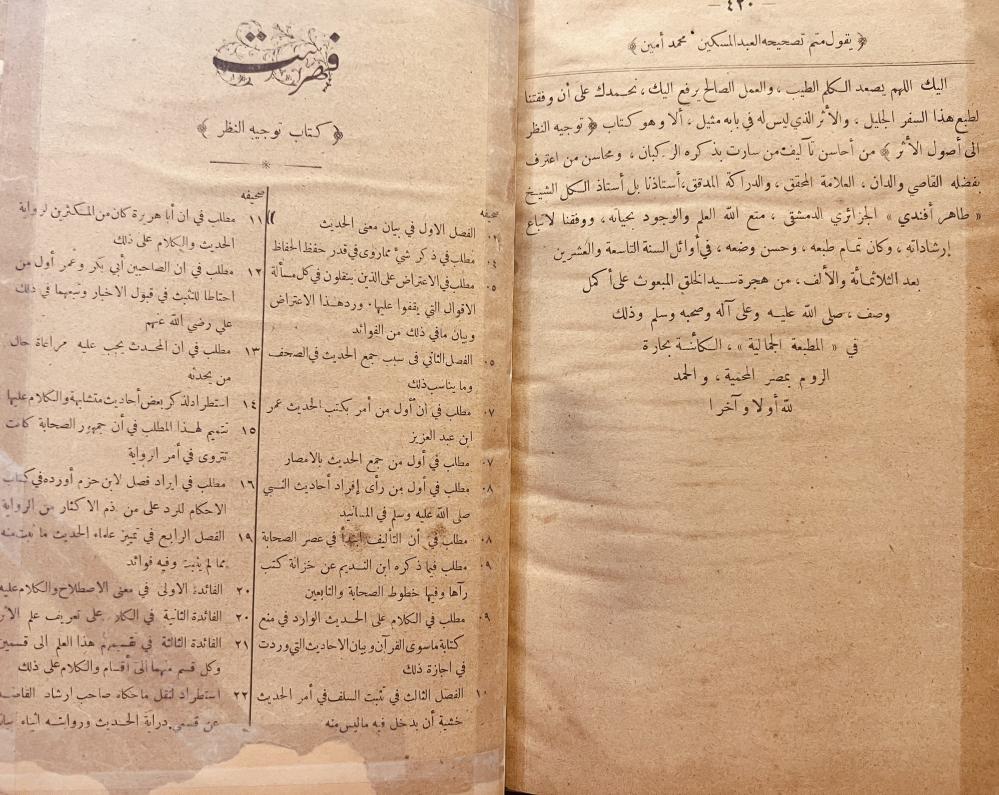 — ٤٢٠ —
﴿ يقول متمم تصحيحه العبد المسكين محمد أمين ﴾
اليك اللهم يصعد الكلم الطيب ، والعمل الصالح يرفع اليك ، نحمدك على أن وفقتنا
لطبع هذا السفر الجليل ، والأثر الذي ليس له في بابه مثيل ، ألا وهو كتاب ﴿ توجيه النظر
الى أصول الأثر ﴾ من أحاسن تآليف من سارت بذكره الركبان ، ومحاسن من اعترف
بفضله القاصي والدان ، العلامة المحقق ، والدراكة المدقق ، أستاذنا بل أستاذ الكل الشيخ
« طاهر أفندي » الجزائري الدمشقي ، متع الله العلم والوجود بحياته ، ووفقنا لاتباع
إرشاداته ، وكان تمام طبعه ، وحسن وضعه ، في أوائل السنة التاسعة والعشرين
بعد الثلاثمائة والألف ، من هجرة سيد الخلق المبعوث على أكمل
وصف ، صلى الله عليه وعلى آله وصحبه وسلم وذلك
في « المطبعة الجمالية » ، الكائنة بحارة
الروم بمصر المحمية ، والحمد
لله أولا وآخرا
فهرست
﴿ كتاب توجيه النظر ﴾
صحيفه
٠٢ الفصل الاول في بيان معنى الحديث
٠٤ مطلب في ذكر شيء مما روى في قدر حفظ الحفاظ
٠٥ مطلب في الاعتراض على الذين ينقلون في كل مسألة
الاقوال التي يقفوا عليها ، ورد هذا الاعتراض
وبيان ما في ذلك من الفوائد
٠٥ الفصل الثاني في سبب جمع الحديث في الصحف
وما يناسب ذلك
٠٧ مطلب في أن أول من أمر بكتب الحديث عمر
ابن عبد العزيز
٠٧ مطلب في أول من جمع الحديث بالامصار
٠٨ مطلب في أول من رأى إفراد أحاديث النبي
صلى الله عليه وسلم في المسانيد
٠٨ مطلب في أن التأليف ابتدأ في عصر الصحابة
٠٩ مطلب فيما ذكره ابن النديم عن خزانة كتب
رآها وفيها خطوط الصحابة والتابعين
٠٩ مطلب في الكلام على الحديث الوارد في منع
كتابة ما سوى القرآن وبيان الاحاديث التي وردت
في اجازة ذلك
١٠ الفصل الثالث في تثبت السلف في أمر الحديث
خشية أن يدخل فيه ما ليس منه
صحيفه
١١ مطلب في ان أبا هريرة كان من المكثرين لرواية
الحديث والكلام على ذلك
١٢ مطلب في ان الصاحبين أبي بكر وعمر أول من
احتاطا للتثبت في قبول الاخبار وتبعهما في ذلك
علي رضي الله عنهم
١٣ مطلب في ان المحدث يجب عليه مراعاة حال
من يحدثه
١٤ استطراد لذكر بعض أحاديث متشابهة والكلام عليها
١٥ تتميم لهذا المطلب في أن جمهور الصحابة كانت
تتروى في أمر الرواية
١٦ مطلب في ايراد فصل لابن حزم أورده في كتاب
الاحكام للرد على من ذم الاكثار من الرواية
١٩ الفصل الرابع في تمييز علماء الحديث ما ثبت منه
مما لم يثبت وفيه فوائد
٢٠ الفائدة الاولى في معنى الاصطلاح والكلام عليه
٢٠ الفائدة الثانية في الكلام على تعريف علم
٢١ الفائدة الثالثة في تقسيمهم هذا العلم الى قسمين
وكل قسم منهما الى أقسام والكلام على ذلك
٢٢ استطراد لنقل ما حكاه صاحب ارشاد
عن قسمي دراية الحديث وروايته